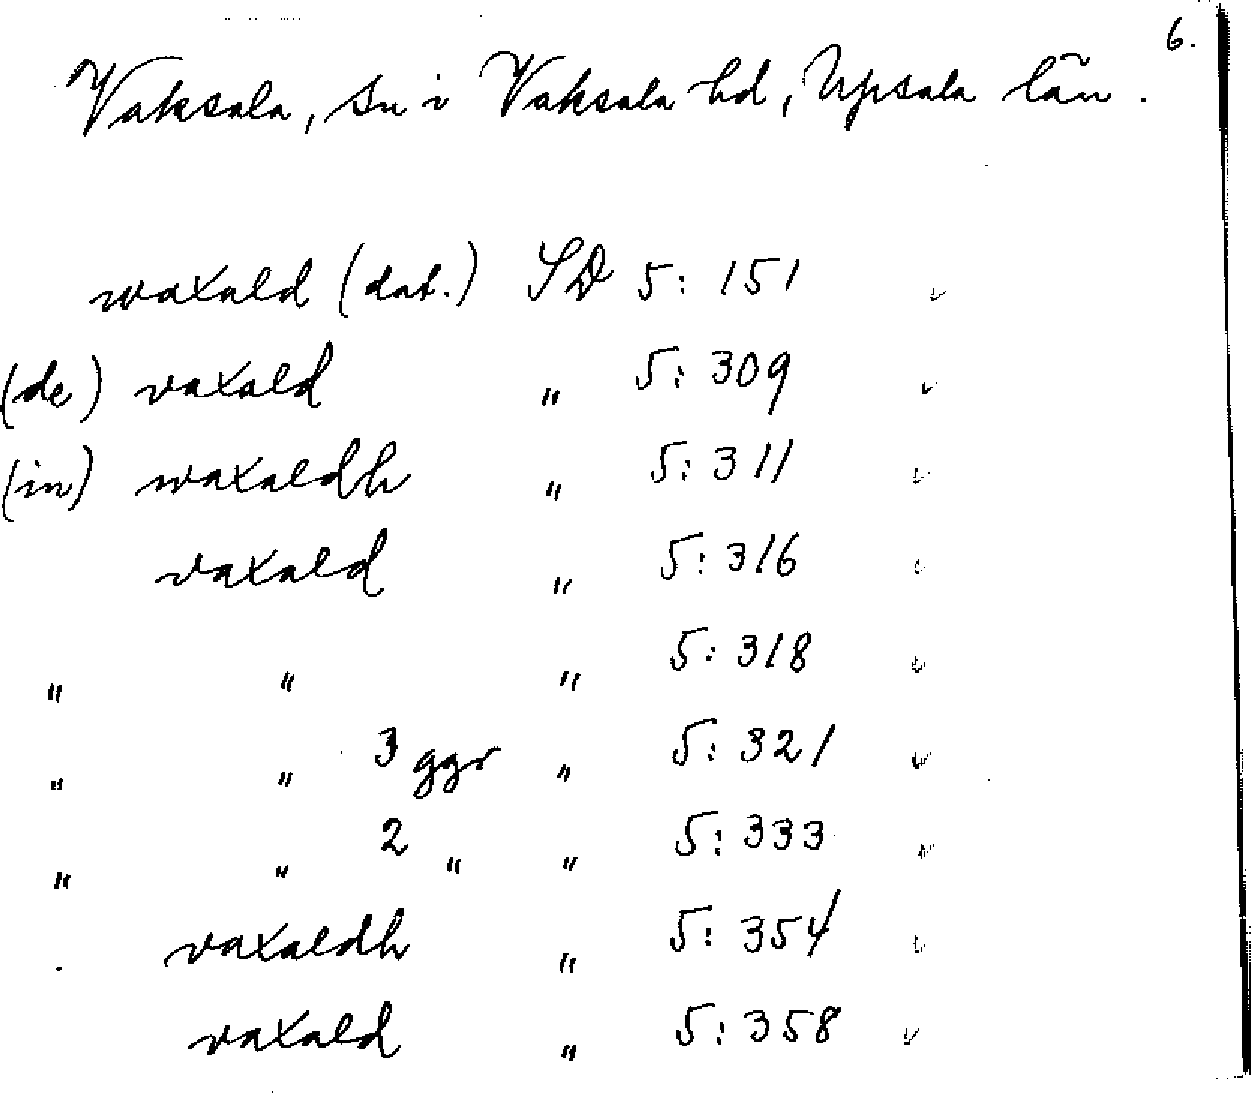 6.
Vaksala, sn i Vaksala hd, Upsala län.
waxald (dat.) SD 5: 151 v
(de) vaxald " 5: 309 v
(in) waxaldh " 5: 311 v
vaxald " 5: 316 v
" " " 5: 318 v
" " 3 ggr " 5: 321 v
" " 2 " " 5: 333 v
vaxaldh " 5: 354 v
vaxald " 5: 358 v